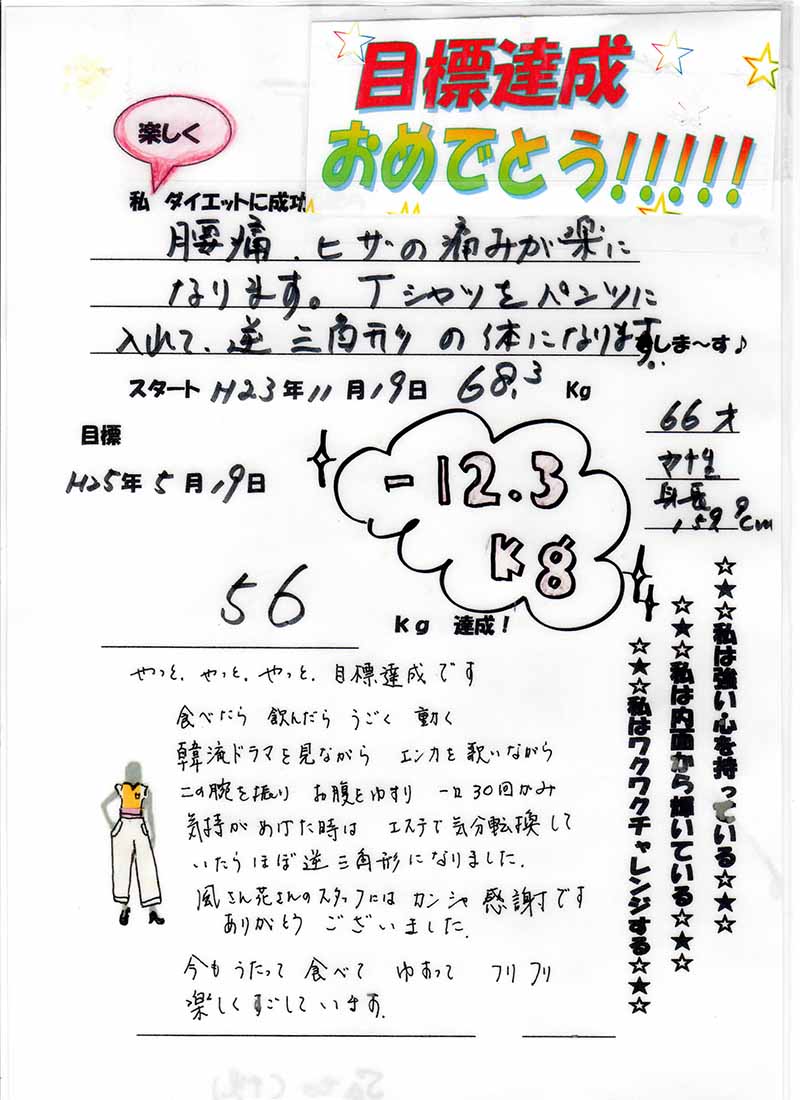 目標達成
おめでとう!!!!!
楽しく
私 ダイエットに成功
腰痛、ヒザの痛みが楽に
なります。Tシャツをパンツに
入れて、逆三角形の体になります。
しま〜す♪
スタート H23年11月19日 68.3 Kg
66才
女性
身長
159.9cm
目標
H25年5月19日
-12.3
kg
56
Kg 達成!
☆★☆私は強い心を持っている☆★☆
☆★☆私は内面から輝いている☆★☆
☆★☆私はワクワクチャレンジする☆★☆
やっと、やっと、やっと、目標達成です
食べたら 飲んだら うごく 動く
韓流ドラマを見ながら エンカを歌いながら
二の腕を振り お腹をゆすり 一口30回かみ
気持がめげた時は エステで気分転換して
いたらほぼ逆三角形になりました.
風さん花さんのスタッフには カンシャ 感謝です
ありがとう ございました.
今もうたって 食べて ゆすって フリフリ
楽しくすごしています.